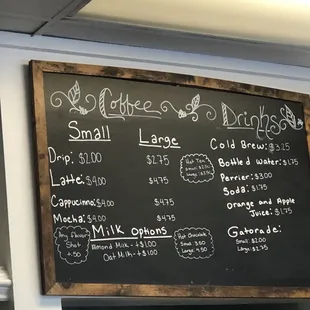 Coffee Drinks
Small Large
Drip: $2.00 $2.75
Latte: $4.00 $4.75
Cappuccino: $4.00 $4.75
Mocha: $4.00 $4.75
Hot Tea
Small: $2.50
Any flavor
Shot
+.50
Milk Options
Almond Milk - +$1.00
Oat Milk - +$1.00
Hot Chocolate
Small: 3.50
Large: 4.50
Cold Brew: $3.25
Bottled Water: $1.75
Perrier: $3.00
Soda: $1.75
Orange and Apple
Juice: $1.75
Gatorade:
Small: $2.00
Large: $2.75